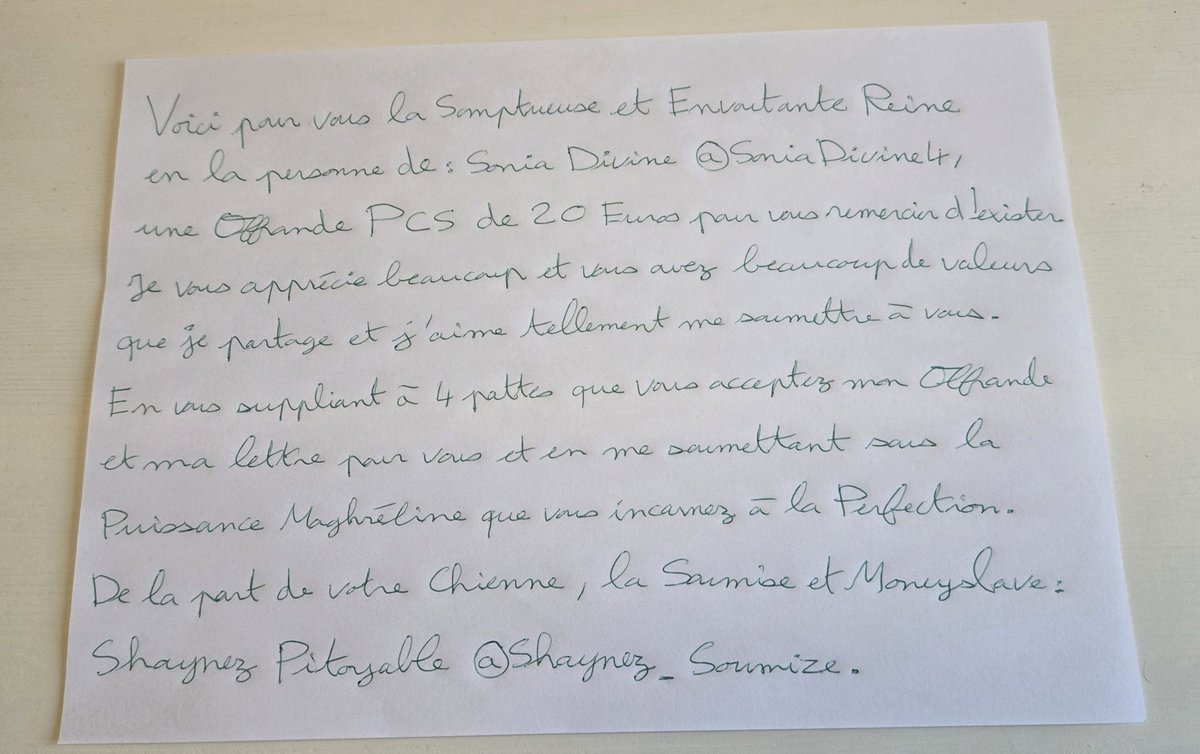 Voici pour vous la Somptueuse et Envoutante Reine
en la personne de : Sonia Divine @SoniaDivine4,
une Offrande PCS de 20 Euros pour vous remercier d'exister
Je vous apprécie beaucoup et vous avez beaucoup de valeurs
que je partage et j'aime tellement me soumettre à vous.
En vous suppliant à 4 pattes que vous acceptez mon Offrande
et ma lettre pour vous et en me soumettant sous la
Puissance Maghrébine que vous incarnez à la Perfection.
De la part de votre Chienne, la Soumise et Moneyslave :
Shaynez Pitoyable @Shaynez_Soumize.